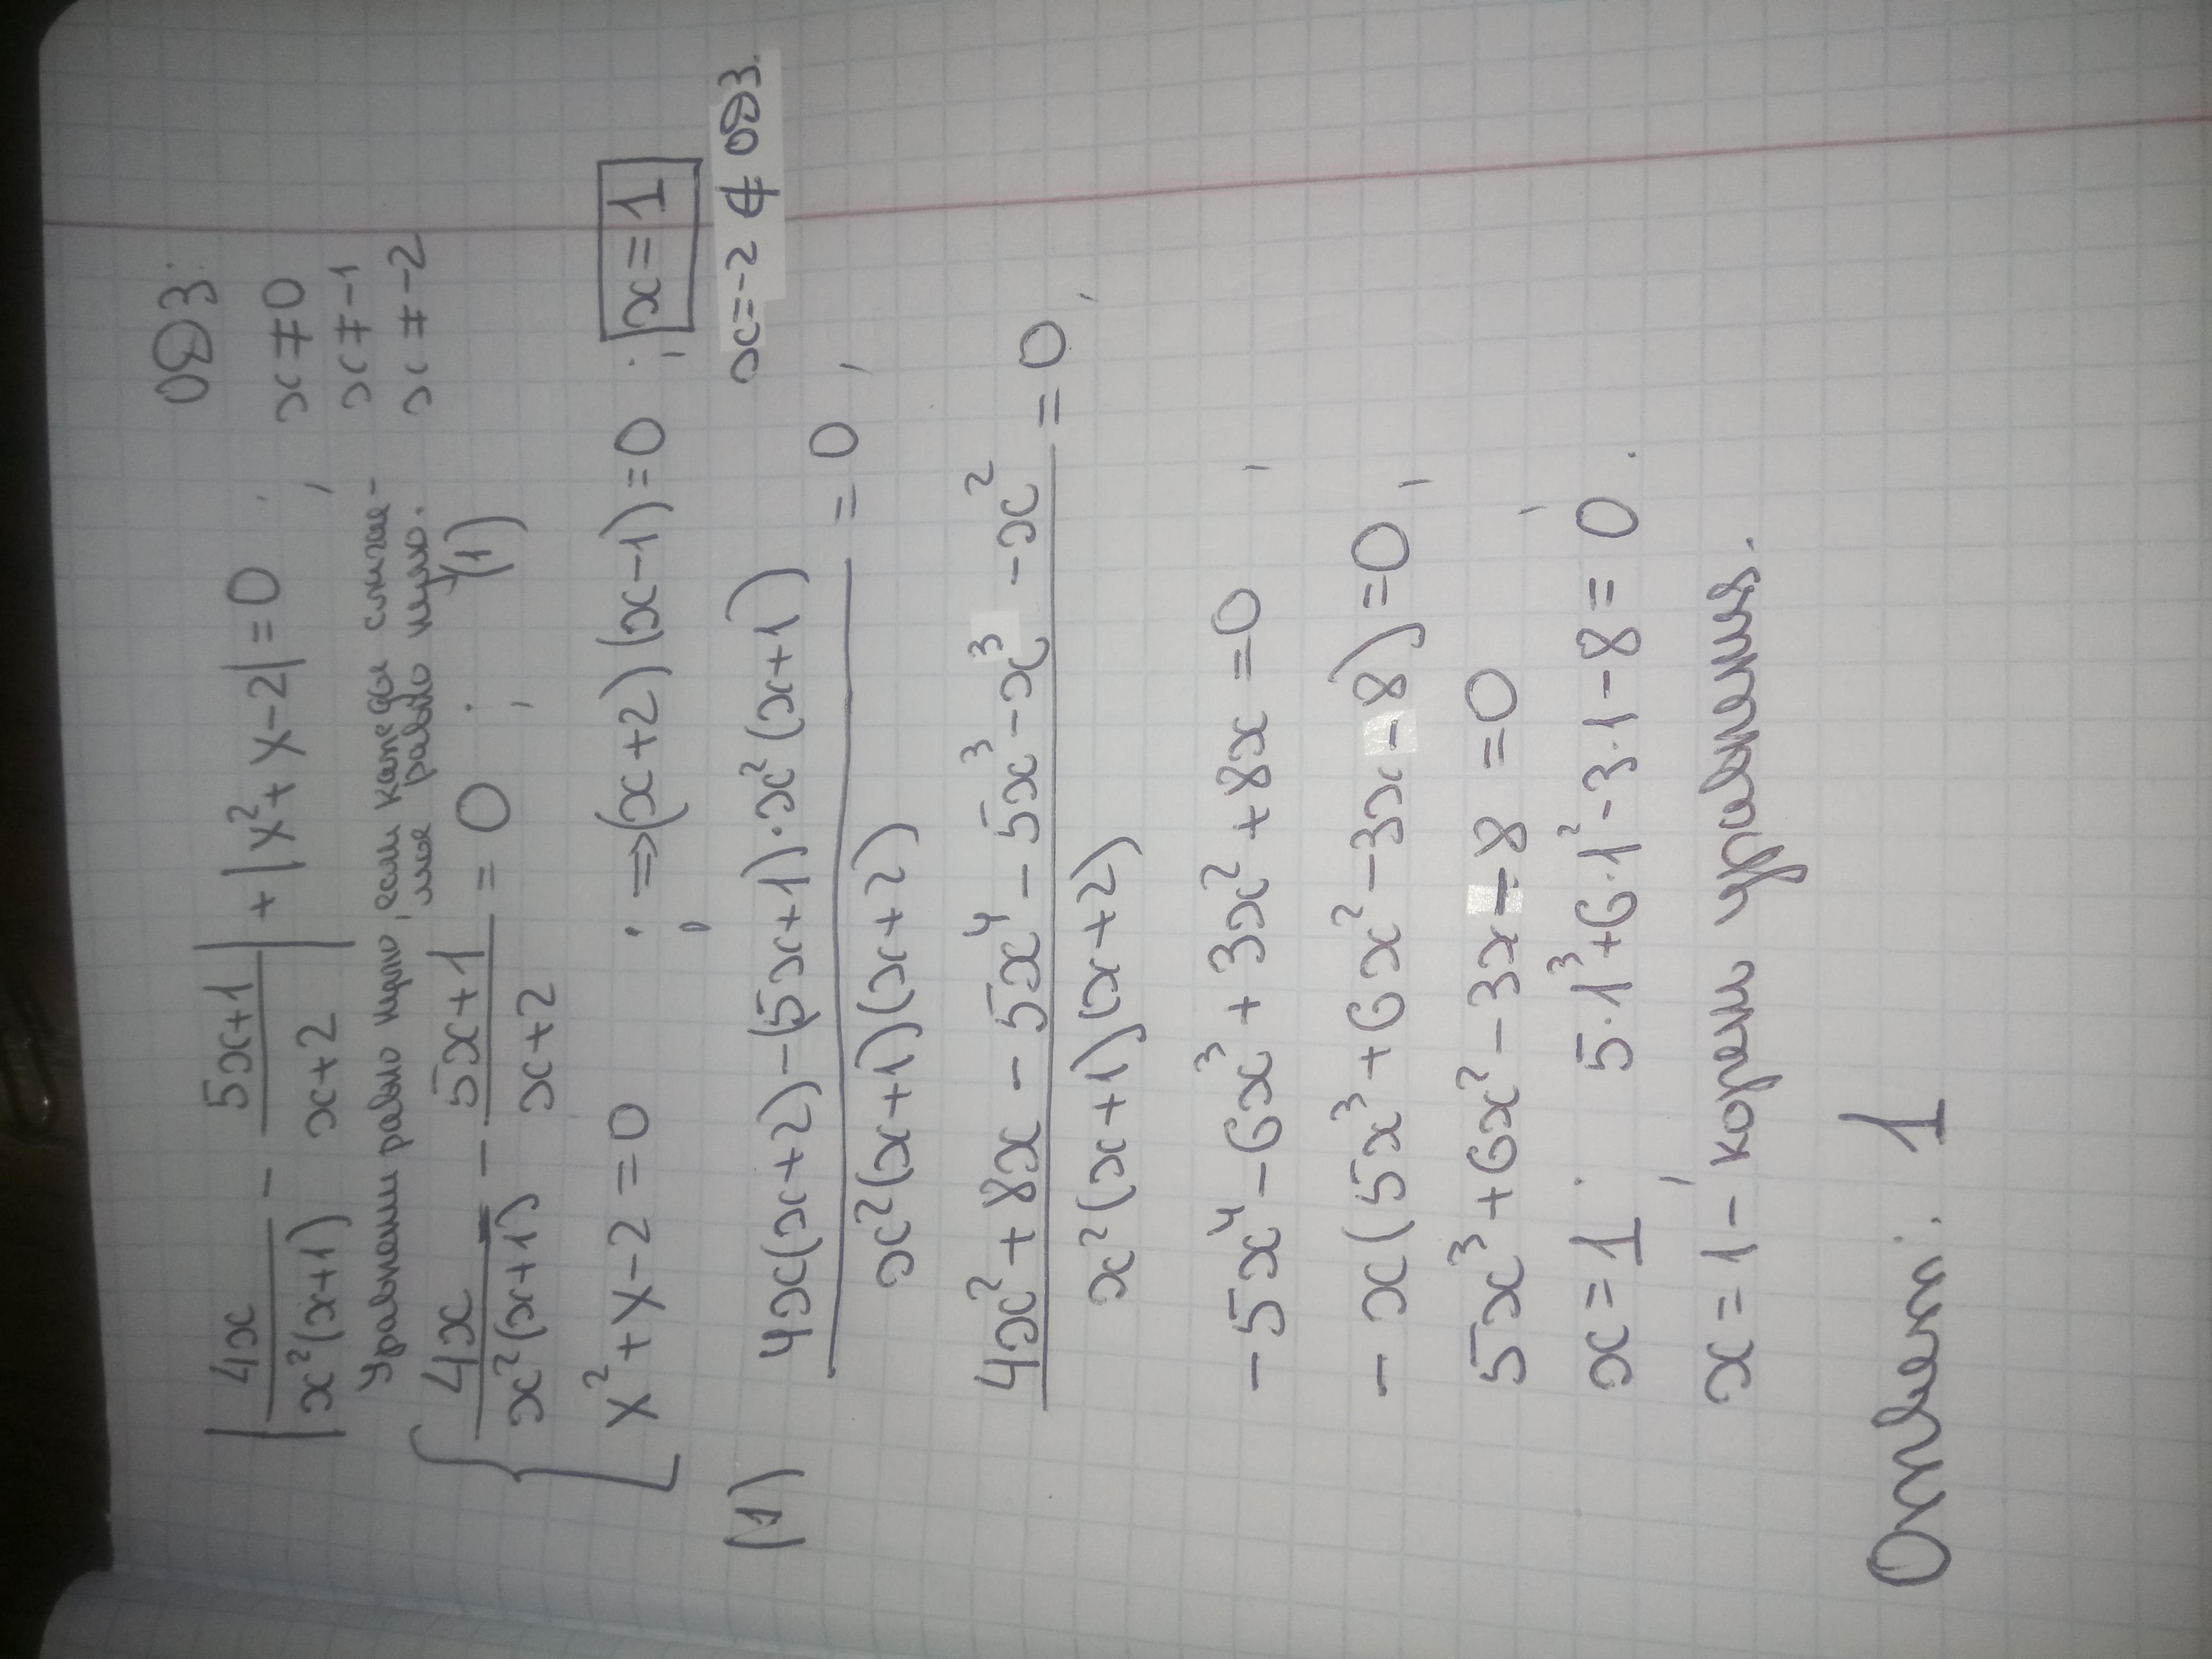 |4x/(x²(x+1)) - (5x+1)/(x+2)| + |x²+x-2| = 0; ОДЗ:
x ≠ 0
x ≠ -1
x ≠ -2
Уравнение равно нулю, если каждое слагае-
мое равно нулю.
{ 4x/(x²(x+1)) - (5x+1)/(x+2) = 0; (1)
x²+x-2=0; ⇒ (x+2)(x-1)=0; x=1
x=-2 ∉ ОДЗ.
(1) (4x(x+2)-(5x+1)·x²(x+1))/(x²(x+1)(x+2)) = 0,
(4x²+8x-5x⁴-5x³-x³-x²)/(x²(x+1)(x+2)) = 0,
-5x⁴-6x³+3x²+8x=0,
-x(5x³+6x²-3x-8)=0,
5x³+6x²-3x-8=0,
x=1; 5·1³+6·1²-3·1-8=0.
x=1 - корень уравнения.
Ответ: 1